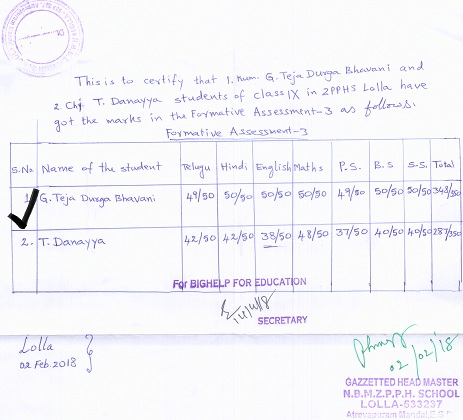 This is to certify that 1. Kum. G. Teja Durga Bhavani and
2. Chi T. Danayya students of class IX in ZPPHS Lolla have
got the marks in the Formative Assessment-3 as follows.
Formative Assessment-3
S.No Name of the student Telugu Hindi English Maths P.S. B.S S.S. Total
1. G. Teja Durga Bhavani 49/50 50/50 50/50 50/50 49/50 50/50 50/50 348/350
2. T. Danayya 42/50 42/50 38/50 48/50 37/50 40/50 40/50 287/350
For BIGHELP FOR EDUCATION
SECRETARY
Lolla
02 Feb. 2018
02/02/18
GAZZETTED HEAD MASTER
N.B.M.Z.P.P.H. SCHOOL
LOLLA-533237
Atreyapuram Mandal, E.G.